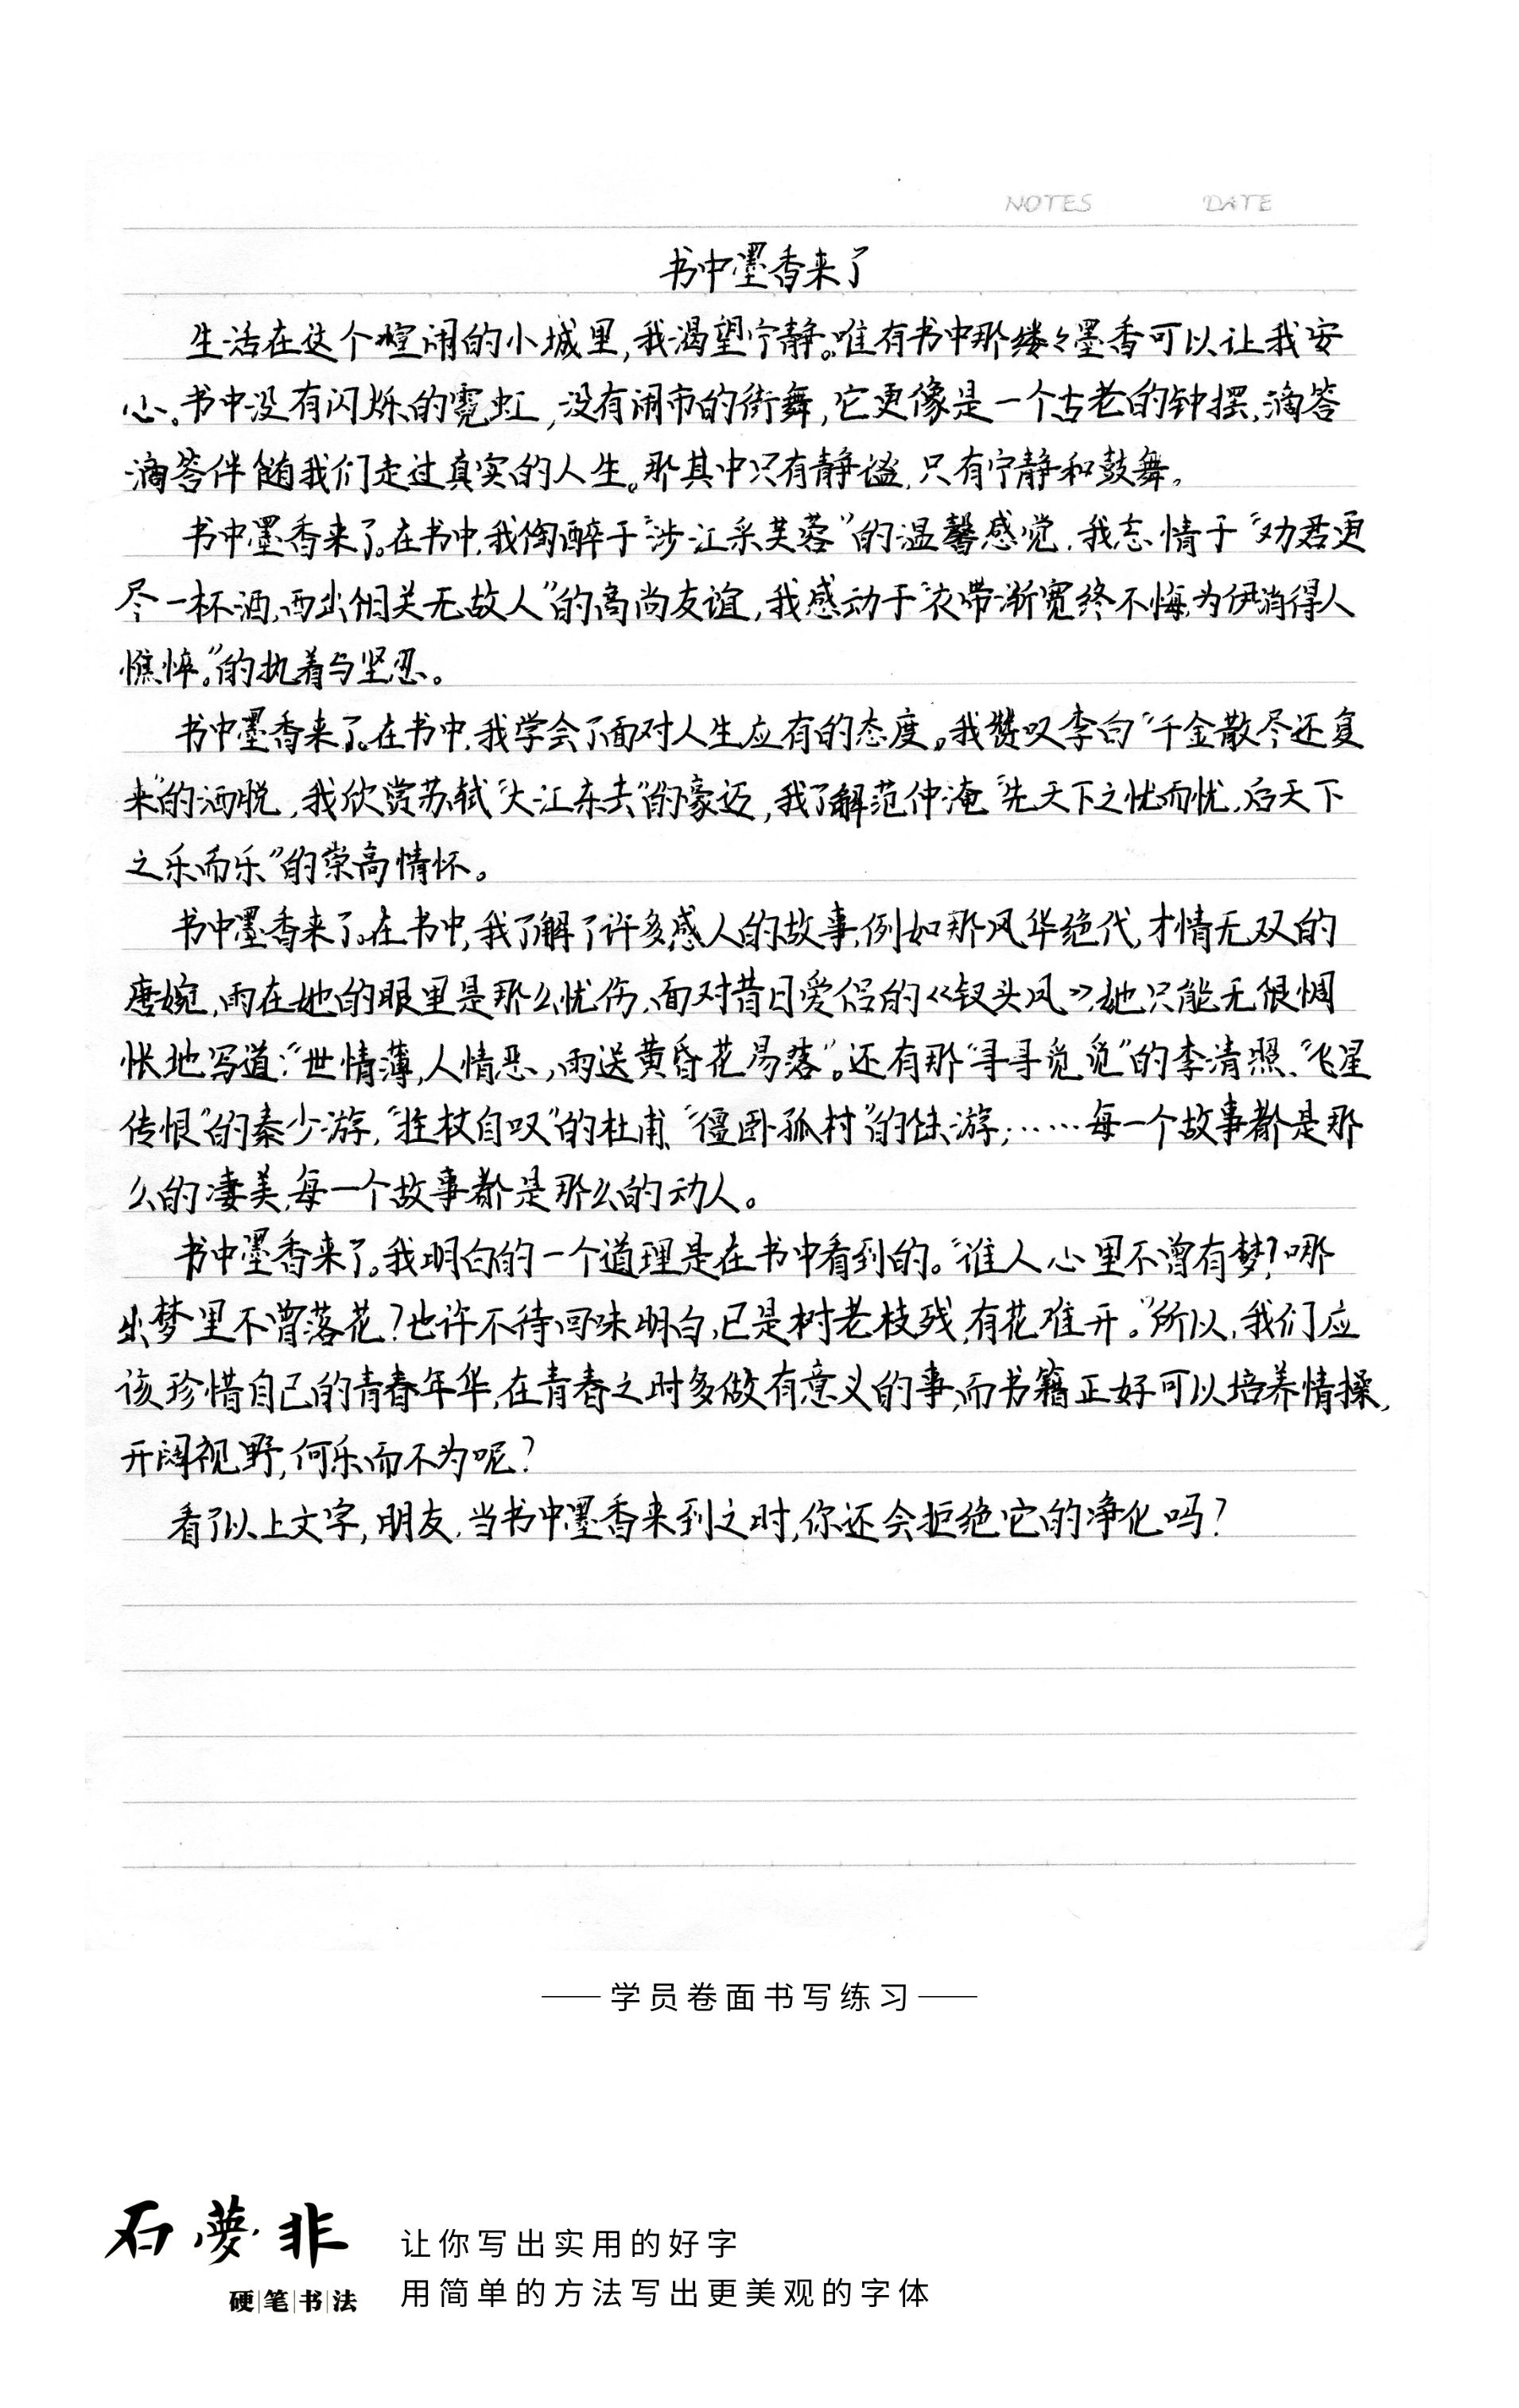 NOTES DATE
书中墨香来了
生活在这个喧闹的小城里,我渴望宁静。唯有书中那缕々墨香可以让我安
心。书中没有闪烁的霓虹,没有闹市的街舞,它更像是一个古老的钟摆,滴答
滴答伴随我们走过真实的人生。那其中只有静谧,只有宁静和鼓舞。
书中墨香来了。在书中,我陶醉于“涉江采芙蓉”的温馨感觉,我忘情于“劝君更
尽一杯酒,西出阳关无故人”的高尚友谊,我感动于“衣带渐宽终不悔,为伊消得人
憔悴。”的执着与坚忍。
书中墨香来了。在书中,我学会了面对人生应有的态度。我赞叹李白“千金散尽还复
来”的洒悦,我欣赏苏轼“大江东去”的豪迈,我了解范仲淹“先天下之忧而忧,后天下
之乐而乐”的崇高情怀。
书中墨香来了。在书中,我了解了许多感人的故事,例如那风华绝代,才情无双的
唐婉,雨在她的眼里是那么忧伤,面对昔日爱侣的《钗头凤》,她只能无限惆
怅地写道:“世情薄,人情恶,雨送黄昏花易落”。还有那“寻寻觅觅”的李清照、“飞星
传恨”的秦少游,“拄杖自叹”的杜甫、“僵卧孤村”的陆游;……每一个故事都是那
么的凄美,每一个故事都是那么的动人。
书中墨香来了。我明白的一个道理是在书中看到的。“谁人心里不曾有梦?哪
出梦里不曾落花?也许不待回味明白,已是树老枝残,有花难开。”所以,我们应
该珍惜自己的青春年华,在青春之时多做有意义的事,而书籍正好可以培养情操,
开阔视野,何乐而不为呢?
看了以上文字,朋友,当书中墨香来到之时,你还会拒绝它的净化吗?
——学员卷面书写练习——
石夢非
硬|笔|书|法
让你写出实用的好字
用简单的方法写出更美观的字体